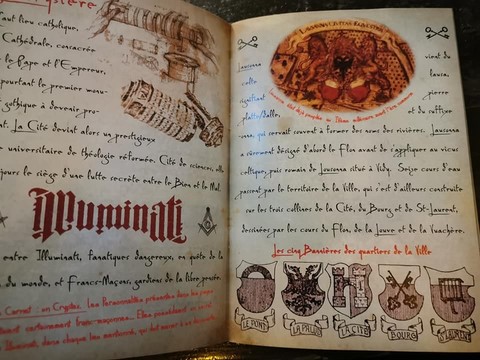 ...ystère
haut lieu catholique.
Cathédrale, consacrée
le Pape et l'Empereur,
pourtant le premier monu-
gothique à devenir pro-
nt. La Cité devint alors un prestigieux
universitaire de théologie réformée. Cité de sciences, elle
jours le siège d'une lutte secrète entre le Bien et le Mal.
Illuminati
entre Illuminati, fanatiques dangereux, en quête de la
du monde, et Francs-Maçons, gardiens de la libre pensée.
Carnet : en Cryptex. Les Personnalités présentes dans les pages
certainement francs-maçonnes.
Illuminati, dans chaque les
Lousonna vient du
celte lausa,
signifiant pierre
platte/dalle, et du suffixe
-onna, qui servait souvent à former des noms des rivières. Lousonna
a sûrement désigné d'abord le Flon avant de s'appliquer au vicus
celtique, puis romain de Lousonna situé à Vidy. Seize cours d'eau
passent par le territoire de la Ville, qui s'est d'ailleurs construite
sur les trois collines de la Cité, du Bourg et de St-Laurent,
dessinées par les cours du Flon, de la Louve et de la Vuachère.
Les cinq Bannières des quartiers de la Ville
LE PONT
LA PALUD
LA CITÉ
BOURG
ST LAURENT